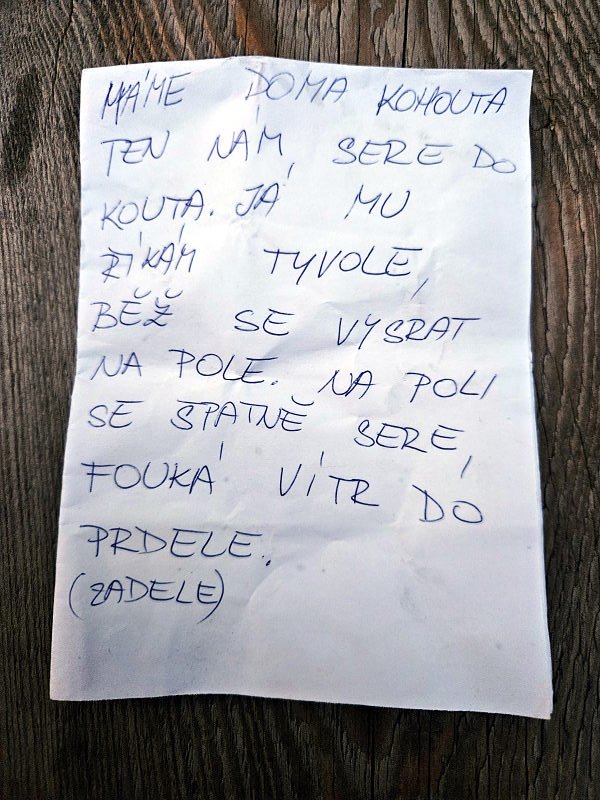 MÁME DOMA KOHOUTA
TEN NÁM SERE DO
KOUTA. JÁ MU
ŘÍKÁM TYVOLE,
BĚŽ SE VYSRAT
NA POLE. NA POLI
SE ŠPATNĚ SERE,
FOUKÁ VÍTR DO
PRDELE.
(ZADELE)